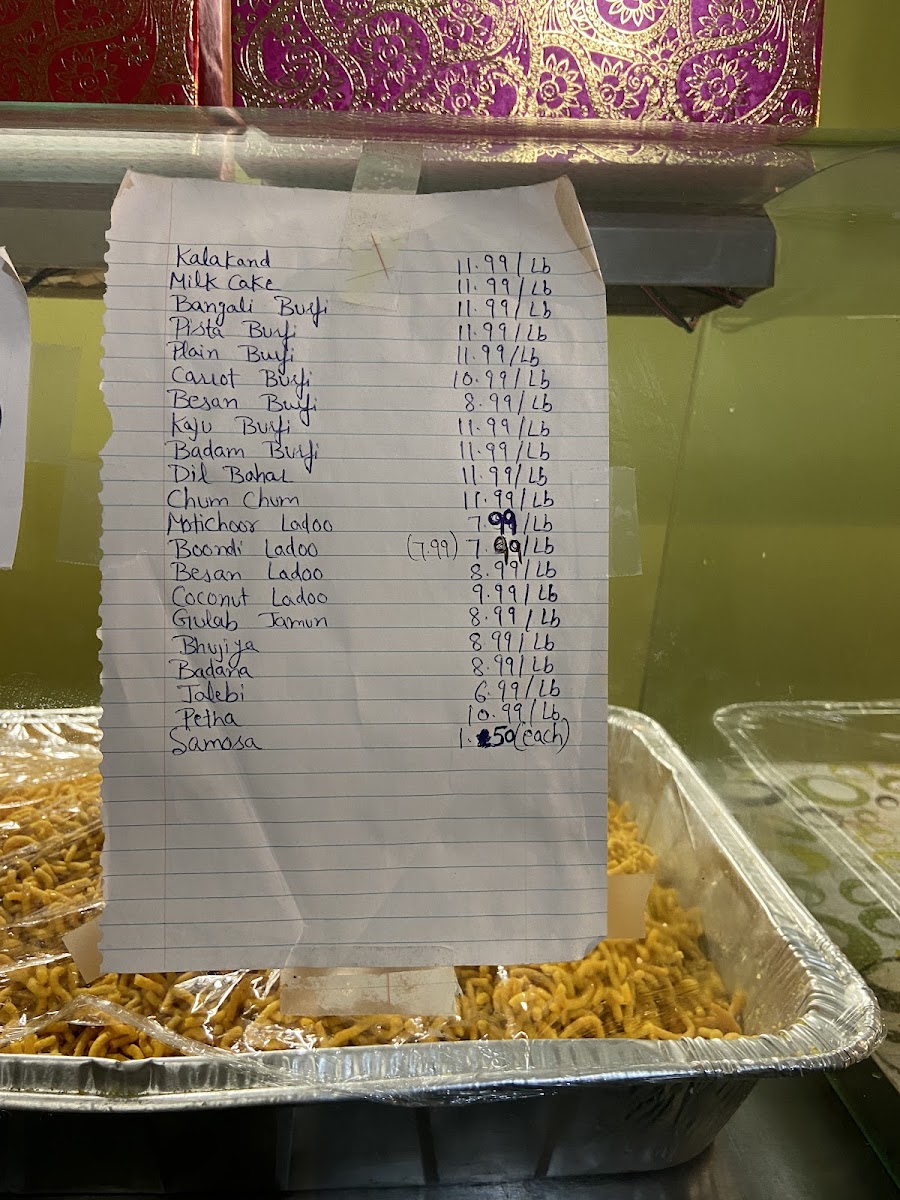 Kalakand 11.99/Lb
Milk Cake 11.99/Lb
Bangali Burfi 11.99/Lb
Pista Burfi 11.99/Lb
Plain Burfi 11.99/Lb
Carrot Burfi 10.99/Lb
Besan Burfi 8.99/Lb
Kaju Burfi 11.99/Lb
Badam Burfi 11.99/Lb
Dil Bahar 11.99/Lb
Chum Chum 11.99/Lb
Motichoor Ladoo 7.99/Lb
Boondi Ladoo (7.99) 7.99/Lb
Besan Ladoo 8.99/Lb
Coconut Ladoo 9.99/Lb
Gulab Jamun 8.99/Lb
Bhujiya 8.99/Lb
Badana 8.99/Lb
Jalebi 6.99/Lb
Petha 10.99/Lb
Samosa 1.50(each)